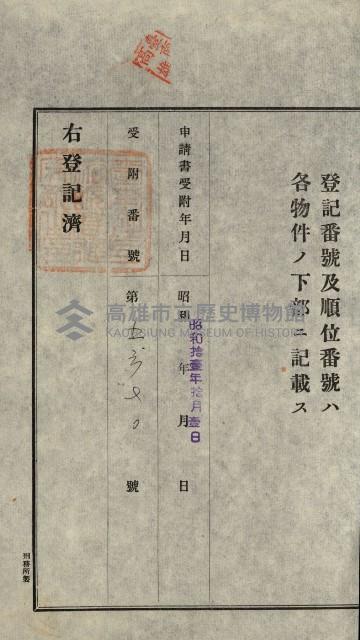 登記番號及順位番號ハ
各物件ノ下部ニ記載ス
申請書受附年月日 昭和 年 月 日
昭和拾壹年拾月壹日
受附番號 第 號
右登記濟
刑務所製
高雄市立歷史博物館
KAOHSIUNG MUSEUM OF HISTORY